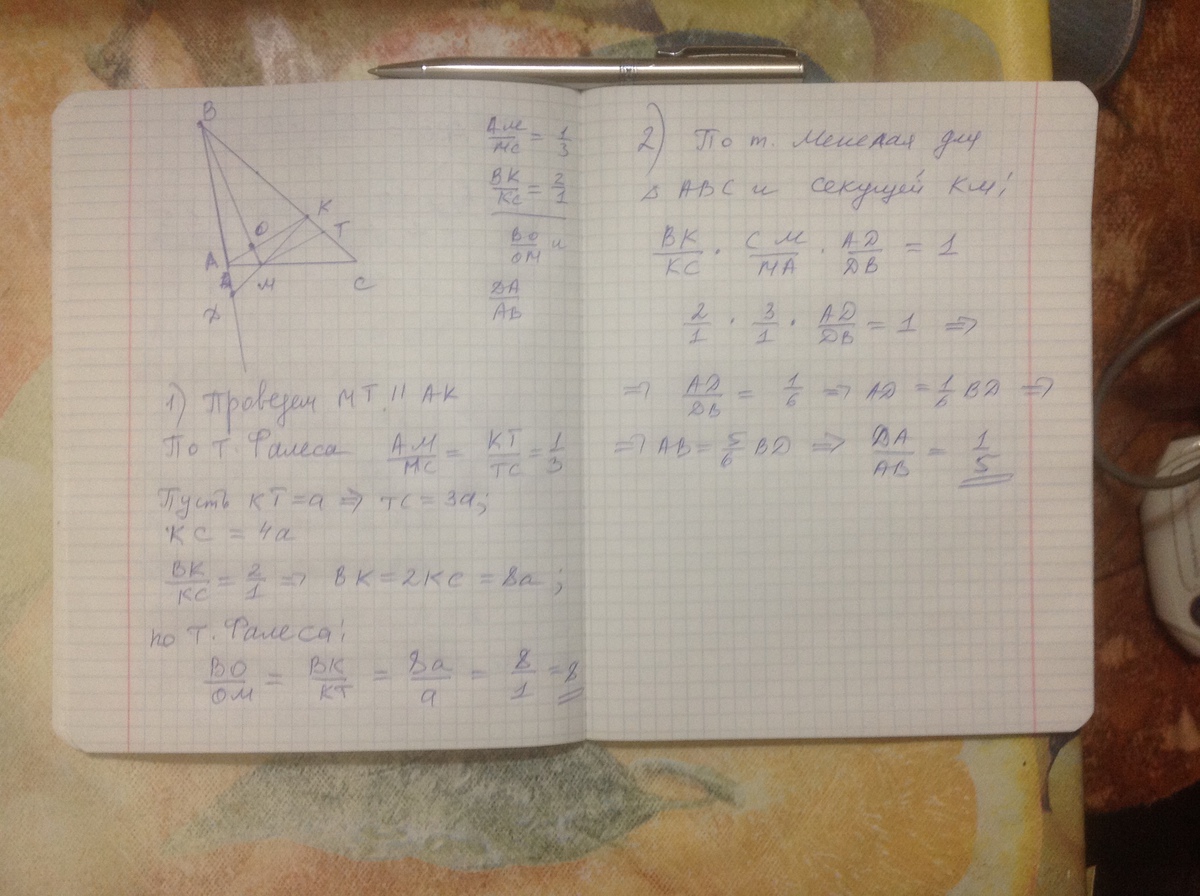 B
K
T
O
A
A
M
C
D
AM/MC = 1/3
BK/KC = 2/1
BO/OM и
DA/AB
1) Проведем MT || AK
По т. Фалеса AM/MC = KT/TC = 1/3
Пусть KT = a ⇒ TC = 3a;
KC = 4a
BK/KC = 2/1 ⇒ BK = 2KC = 8a;
по т. Фалеса:
BO/OM = BK/KT = 8a/a = 8/1 = 8
2) По т. Менелая для
△ ABC и секущей KM:
BK/KC · CM/MA · AD/DB = 1
2/1 · 3/1 · AD/DB = 1 ⇒
⇒ AD/DB = 1/6 ⇒ AD = 1/6 BD ⇒
⇒ AB = 5/6 BD ⇒ DA/AB = 1/5